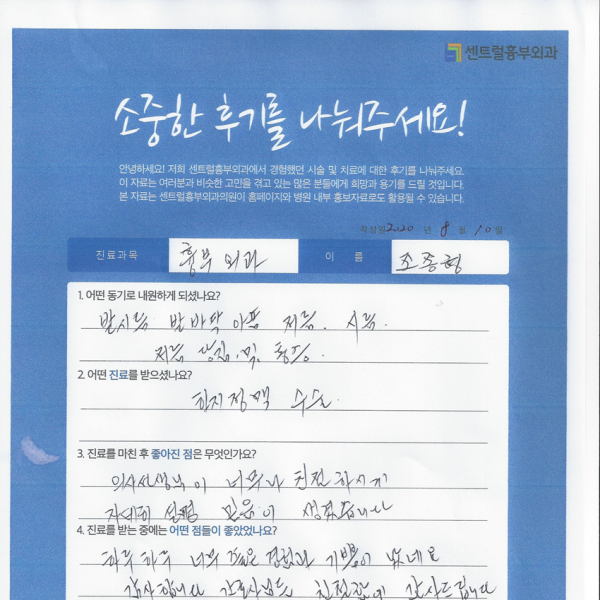 센트럴흉부외과
소중한 후기를 나눠주세요!
안녕하세요! 저희 센트럴흉부외과에서 경험했던 시술 및 치료에 대한 후기를 나눠주세요.
이 자료는 여러분과 비슷한 고민을 겪고 있는 많은 분들에게 희망과 용기를 드릴 것입니다.
본 자료는 센트럴흉부외과의원이 홈페이지와 병원 내부 홍보자료로도 활용될 수 있습니다.
작성일 2020 년 8 월 10 일
진료과목 흉부외과 이 름 조종형
1. 어떤 동기로 내원하게 되셨나요?
발시름 발바닥 아픔 저름. 시름.
저름 당김. 및. 통증.
2. 어떤 진료를 받으셨나요?
하지정맥 수술.
3. 진료를 마친 후 좋아진 점은 무엇인가요?
의사선생님이 너무나 친절하시게
자세히 설명 믿음이 생겼습니다
4. 진료를 받는 중에는 어떤 점들이 좋았었나요?
하루하루 너무 좋은 경험과 기쁨이 났네요
감사합니다 간호사님들 친절함에 감사드립니다